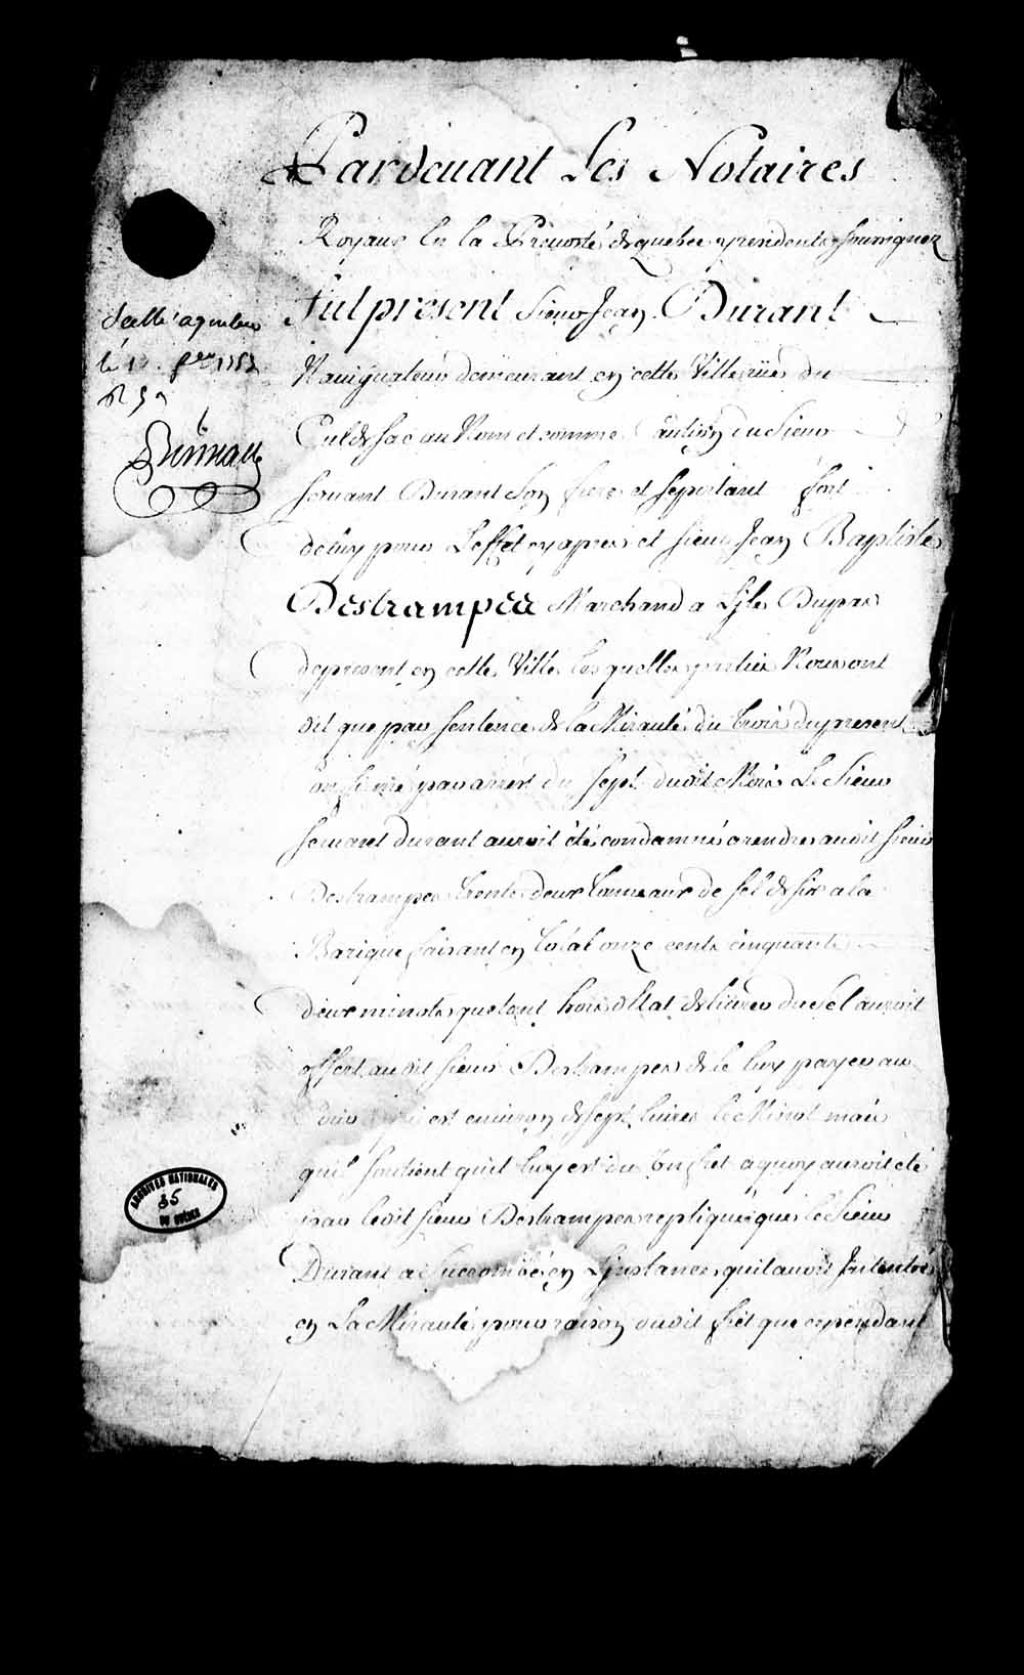 Pardevant Les Notaires
Royaux En la Prevosté de quebec y residents soussignez
fut present Sieur Jean Durant
Navigateur demeurant en cette Ville rue du
Cul de sac au Nom et comme caution du Sieur
Durant son frere et se portant fort
de luy pour L'effet cy apres et Sieur Jean Baptiste
Destrampee Marchand a L'jle Dupas
de present en cette Ville lesquelles parties Nous ont
dit que par sentence de la Mirauté du trois du present
par arrest du sept dudit Mois Le Sieur
Durant auroit été condamné a rendre audit sieur
Destrampes trente deux tonneaux de sel de six a la
Barique faisant en total onze cents cinquante
deux minots que tant hors d'Etat de livrer du sel auroit
offert audit sieur Destrampes de le luy payer au
est environ de sept livres le Minot mais
qu'il soutient qu'il luy est du Un fret a quoy auroit été
par ledit sieur Destrampes repliqué que le Sieur
Durant a succombé en L'jnstance qu'il avoit Intenté
en La Mirauté pour raison dudit fret que cependant
Scellé a quebec
le 1753
ARCHIVES NATIONALES
35
DU QUÉBEC